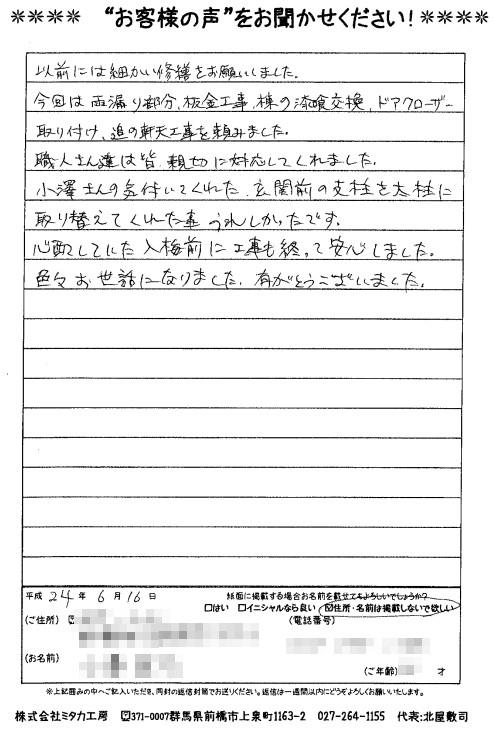 **** “お客様の声”をお聞かせください！****
以前には細かい修繕をお願いしました。
今回は雨漏り部分、板金工事、棟の漆喰交換、ドアクローザー
取り付け、追の軒天工事を頼みました。
職人さん達は皆、親切に対応してくれました。
小澤さんの気付いてくれた、玄関前の支柱を太柱に
取り替えてくれた事うれしかったです。
心配していた入梅前に工事も終って安心しました。
色々お世話になりました。有がとうございました。
平成 24 年 6 月 16 日
紙面に掲載する場合お名前を載せてもよろしいでしょうか?
□はい □イニシャルなら良い ☑住所・名前は掲載しないで欲しい
(ご住所) 〒
(電話番号)
(お名前)
(ご年齢) 才
※上記囲みの中へご記入いただき、同封の返信封筒でお送りください。返信は一週間以内にどうぞよろしくお願いいたします。
株式会社ミタカ工房 〒371-0007群馬県前橋市上泉町1163-2 027-264-1155 代表:北屋敷司